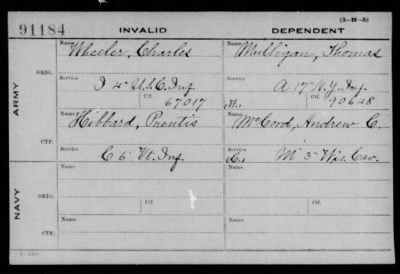 (3-H-3)
91184 INVALID DEPENDENT
Name Wheeler, Charles Name Mulligan, Thomas
ARMY
ORIG. Service I 4" U.S.C. Inf Service A 17" N.Y. Inf.
Ctf. 67017 M. Ctf. 90648
Name Hibbard, Prentis Name McCord, Andrew C.
CTF. Service C 6" Vt. Inf Service C. M" 3" Wis. Cav.
NAVY
Name Name
ORIG. Service Service
Ctf. Ctf.
Name Name
CTF. Service Service